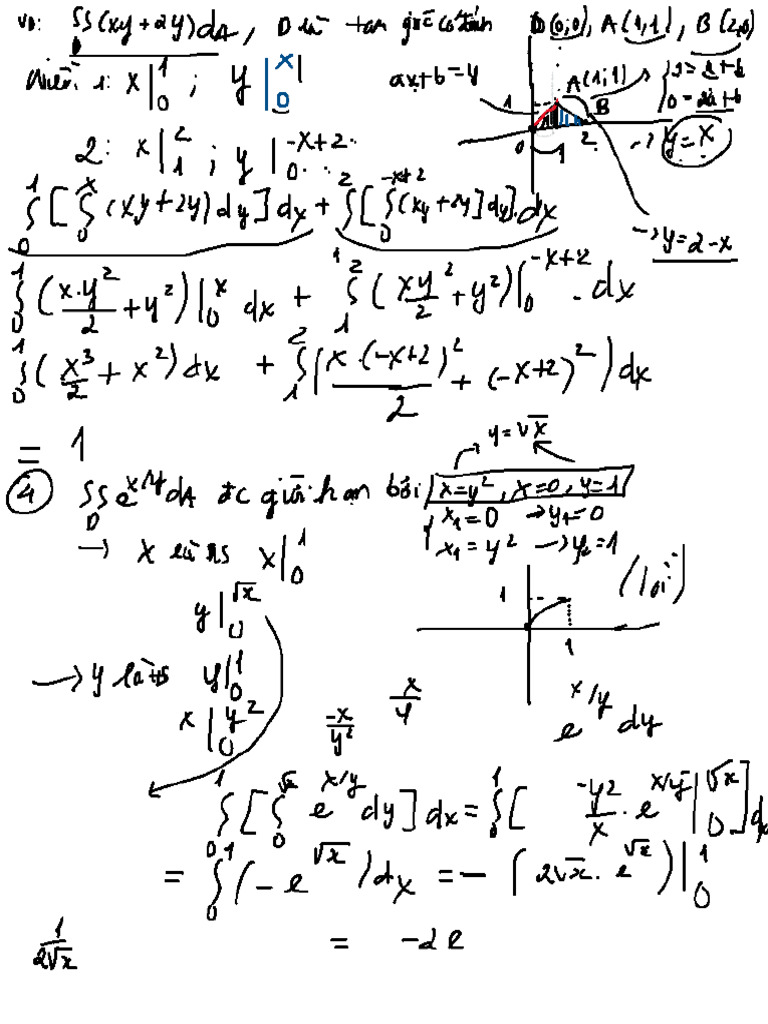 VD: ∬_D (xy+2y)dA, D là tam giác có đỉnh O(0;0), A(1,1), B(2,0)
Miền 1: x|₀¹ ; y|₀ˣ
ax+b=y
A(1;1)
B
1
0 1 2
→ y=x
2: x|₁² ; y|₀^(-x+2)
∫₀¹[∫₀ˣ (xy+2y)dy]dx + ∫₁²[∫₀^(-x+2) (xy+2y)dy].dx
→ y=2-x
∫₀¹ (x.y²/2 + y²)|₀ˣ dx + ∫₁² (xy²/2 + y²)|₀^(-x+2) . dx
∫₀¹ (x³/2 + x²)dx + ∫₁² (x.(-x+2)²/2 + (-x+2)²)dx
= 1
y=√x
④ ∬_D e^(x/y) dA đc giới hạn bởi x=y², x=0, y=1
x₁=0 → y₁=0
x₁=y² → y₂=1
→ x là ns x|₀¹
y|₀^√x
1
1
→ y là ns y|₀¹
x|₀^y²
-x/y²
x/y
e^(x/y) dy
∫₀¹[∫₀^√x e^(x/y) dy]dx = ∫₀¹[ -y²/x . e^(x/y)|₀^√x ]dx
= ∫₀¹ (-e^√x)dx = -(2√x . e^√x)|₀¹
1/2√x
= -2e